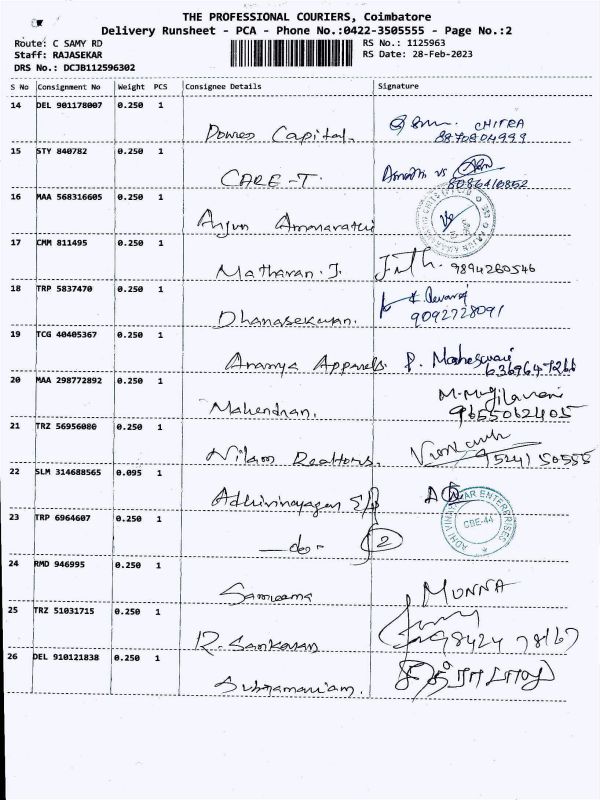 THE PROFESSIONAL COURIERS, Coimbatore
Delivery Runsheet - PCA - Phone No.:0422-3505555 - Page No.:2
Route: C SAMY RD
RS No.: 1125963
Staff: RAJASEKAR
RS Date: 28-Feb-2023
DRS No.: DCJB112596302
S No Consignment No Weight PCS Consignee Details Signature
14 DEL 901178007 0.250 1
Capital. CHITRA
8870804999
15 STY 840782 0.250 1
CARE-T. VS
8086410852
16 MAA 568316605 0.250 1
Arjun Ammaravathi
17 CMM 811495 0.250 1
Matharan. J. 9894260546
18 TRP 5837470 0.250 1
Dhanasekaran.
9092728091
19 TCG 40405367 0.250 1
Ananya Apparels. P. Maheswari
20 MAA 298772892 0.250 1
Mahendran.
9655062405
21 TRZ 56956080 0.250 1
Nilam Realtors.
22 SLM 314688565 0.095 1
Adhivinayagar E/P
ENTERPRISES
CBE-44
23 TRP 6964607 0.250 1
-do- 2
24 RMD 946995 0.250 1
Sameema MUNNA
25 TRZ 51031715 0.250 1
R. Sankaran 98424 78167
26 DEL 910121838 0.250 1
Subramaniam.